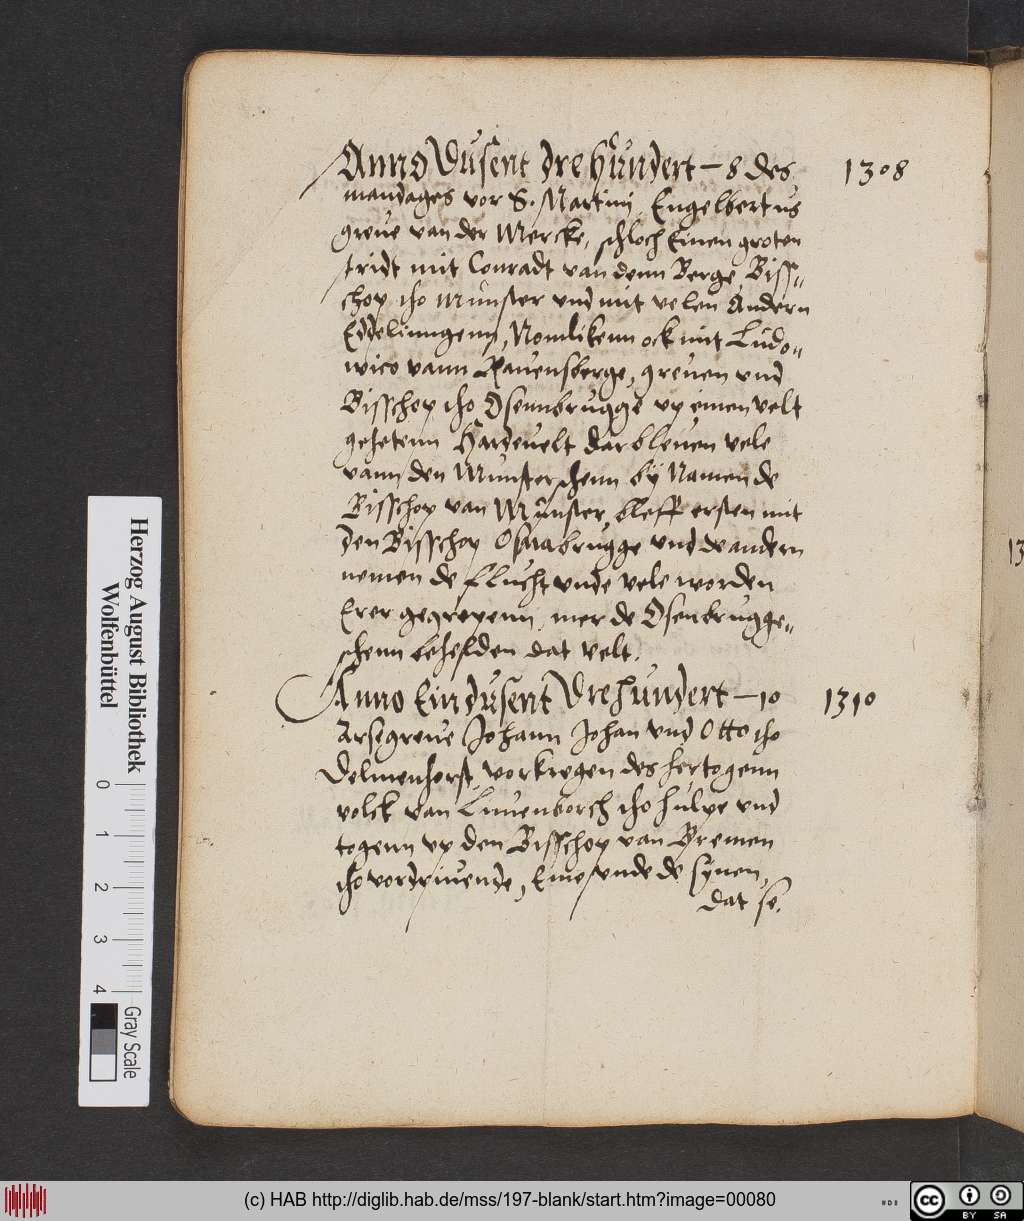 Anno Dusent drehundert – 8 des 1308
mandages vor S. Martini Engelbertus
greve van der Mercke, schloch Einen groten
stridt mit Conradt van denn Berge, Biss„
chop tho Munster vnd mit velen Andern
Eddelinngenn, Nomlikenn ock mit Ludo„
wico vann Ravensberge, greven vnd
Bisschop tho Osennbrugge vp einen velt
gehetenn Hardevelt dar bleven vele
vann den Munsterschenn by Namen de
Bisschop van Munster, bleff ersten mit
den Bisschop Osnabrugge vnd de andern
nemen de flucht vnde vele worden
Erer gegrepenn, mer de Osenbrugge„
schenn behelden dat velt.
Anno Ein dusent Drehundert – 10 1310
greve Johann Johan vnd Otto tho
Delmenhorst, vorkregen des hertogenn
volck van Lunenborch tho hulpe vnd
togenn vp den Bisschop van Bremen
tho vordrivende, Ene vnde de synen,
dat se.
13
Herzog August Bibliothek
Wolfenbüttel
0 1 2 3 4
Gray Scale
(c) HAB http://diglib.hab.de/mss/197-blank/start.htm?image=00080
cc BY SA